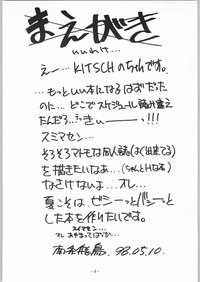 まえがき
いいわけ…
えー… KITSCHのちゃです。
…もっといい本になるはずだった
のに… どこでスケジュール読み違え
たんだろ…きぃーーっ!!!
スミマセン…
そろそろマトモな同人誌(よく出来てる)
を描きたいなあ…(ちゃんとHなる)
なさけないよ…オレ…
夏こそは、ビシーっとバシーっと
した本を作りたいです。
スイマセン…
オレ あやまってばっか…
98.05.10.